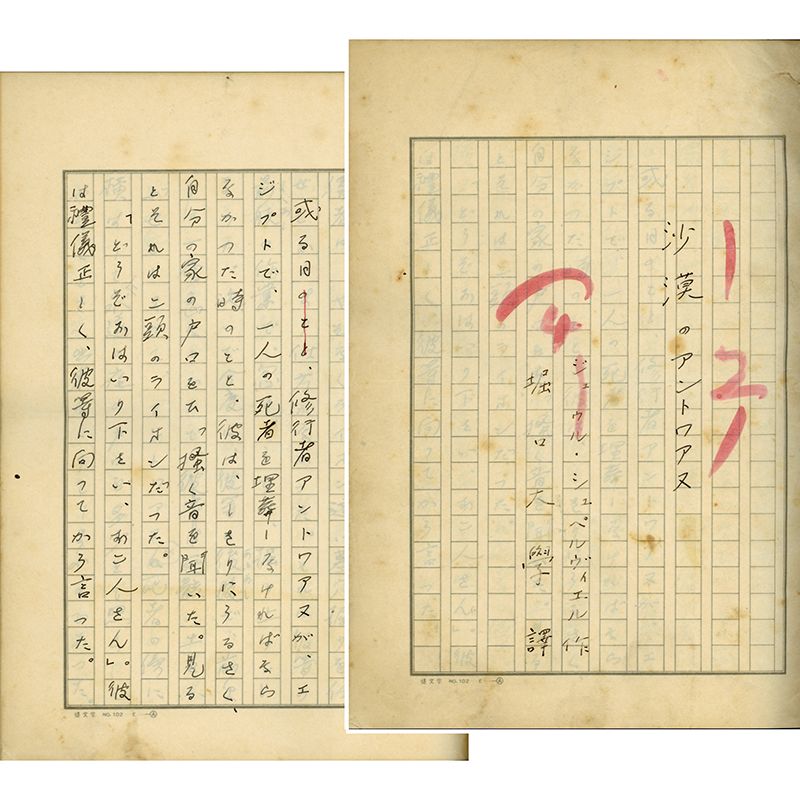 沙漠のアントワアヌ
ジュウル・シュペルヴィエル作
堀口大學譯
NO.102
或る日のこと、修行者アントワアヌが、エ
ジプトで、一人の死者を埋葬しなければなら
なかつた時のこと、彼は、しきりにうるさく、
自分の家の戸口をひつ掻く音を聞いた。見る
とそれは二頭のライオンだつた。
「どうぞおはいり下さい、お二人さん」。彼
は禮儀正しく、彼等に向つてかう言つた。
NO.102